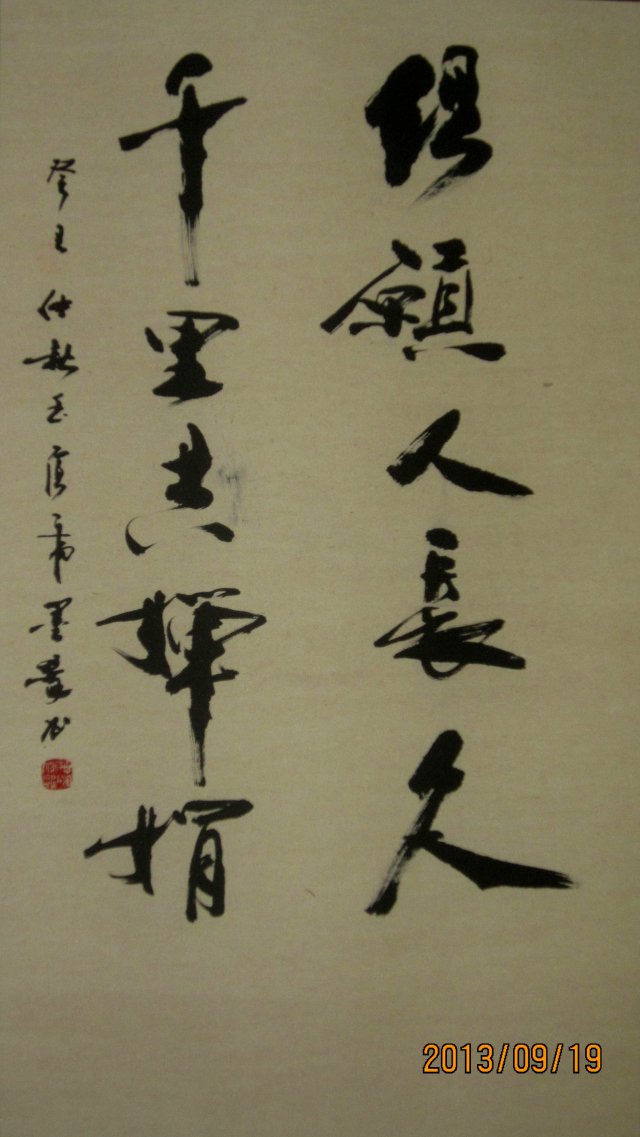 但願人長久
千里共嬋娟
癸巳仲秋
2013/09/19